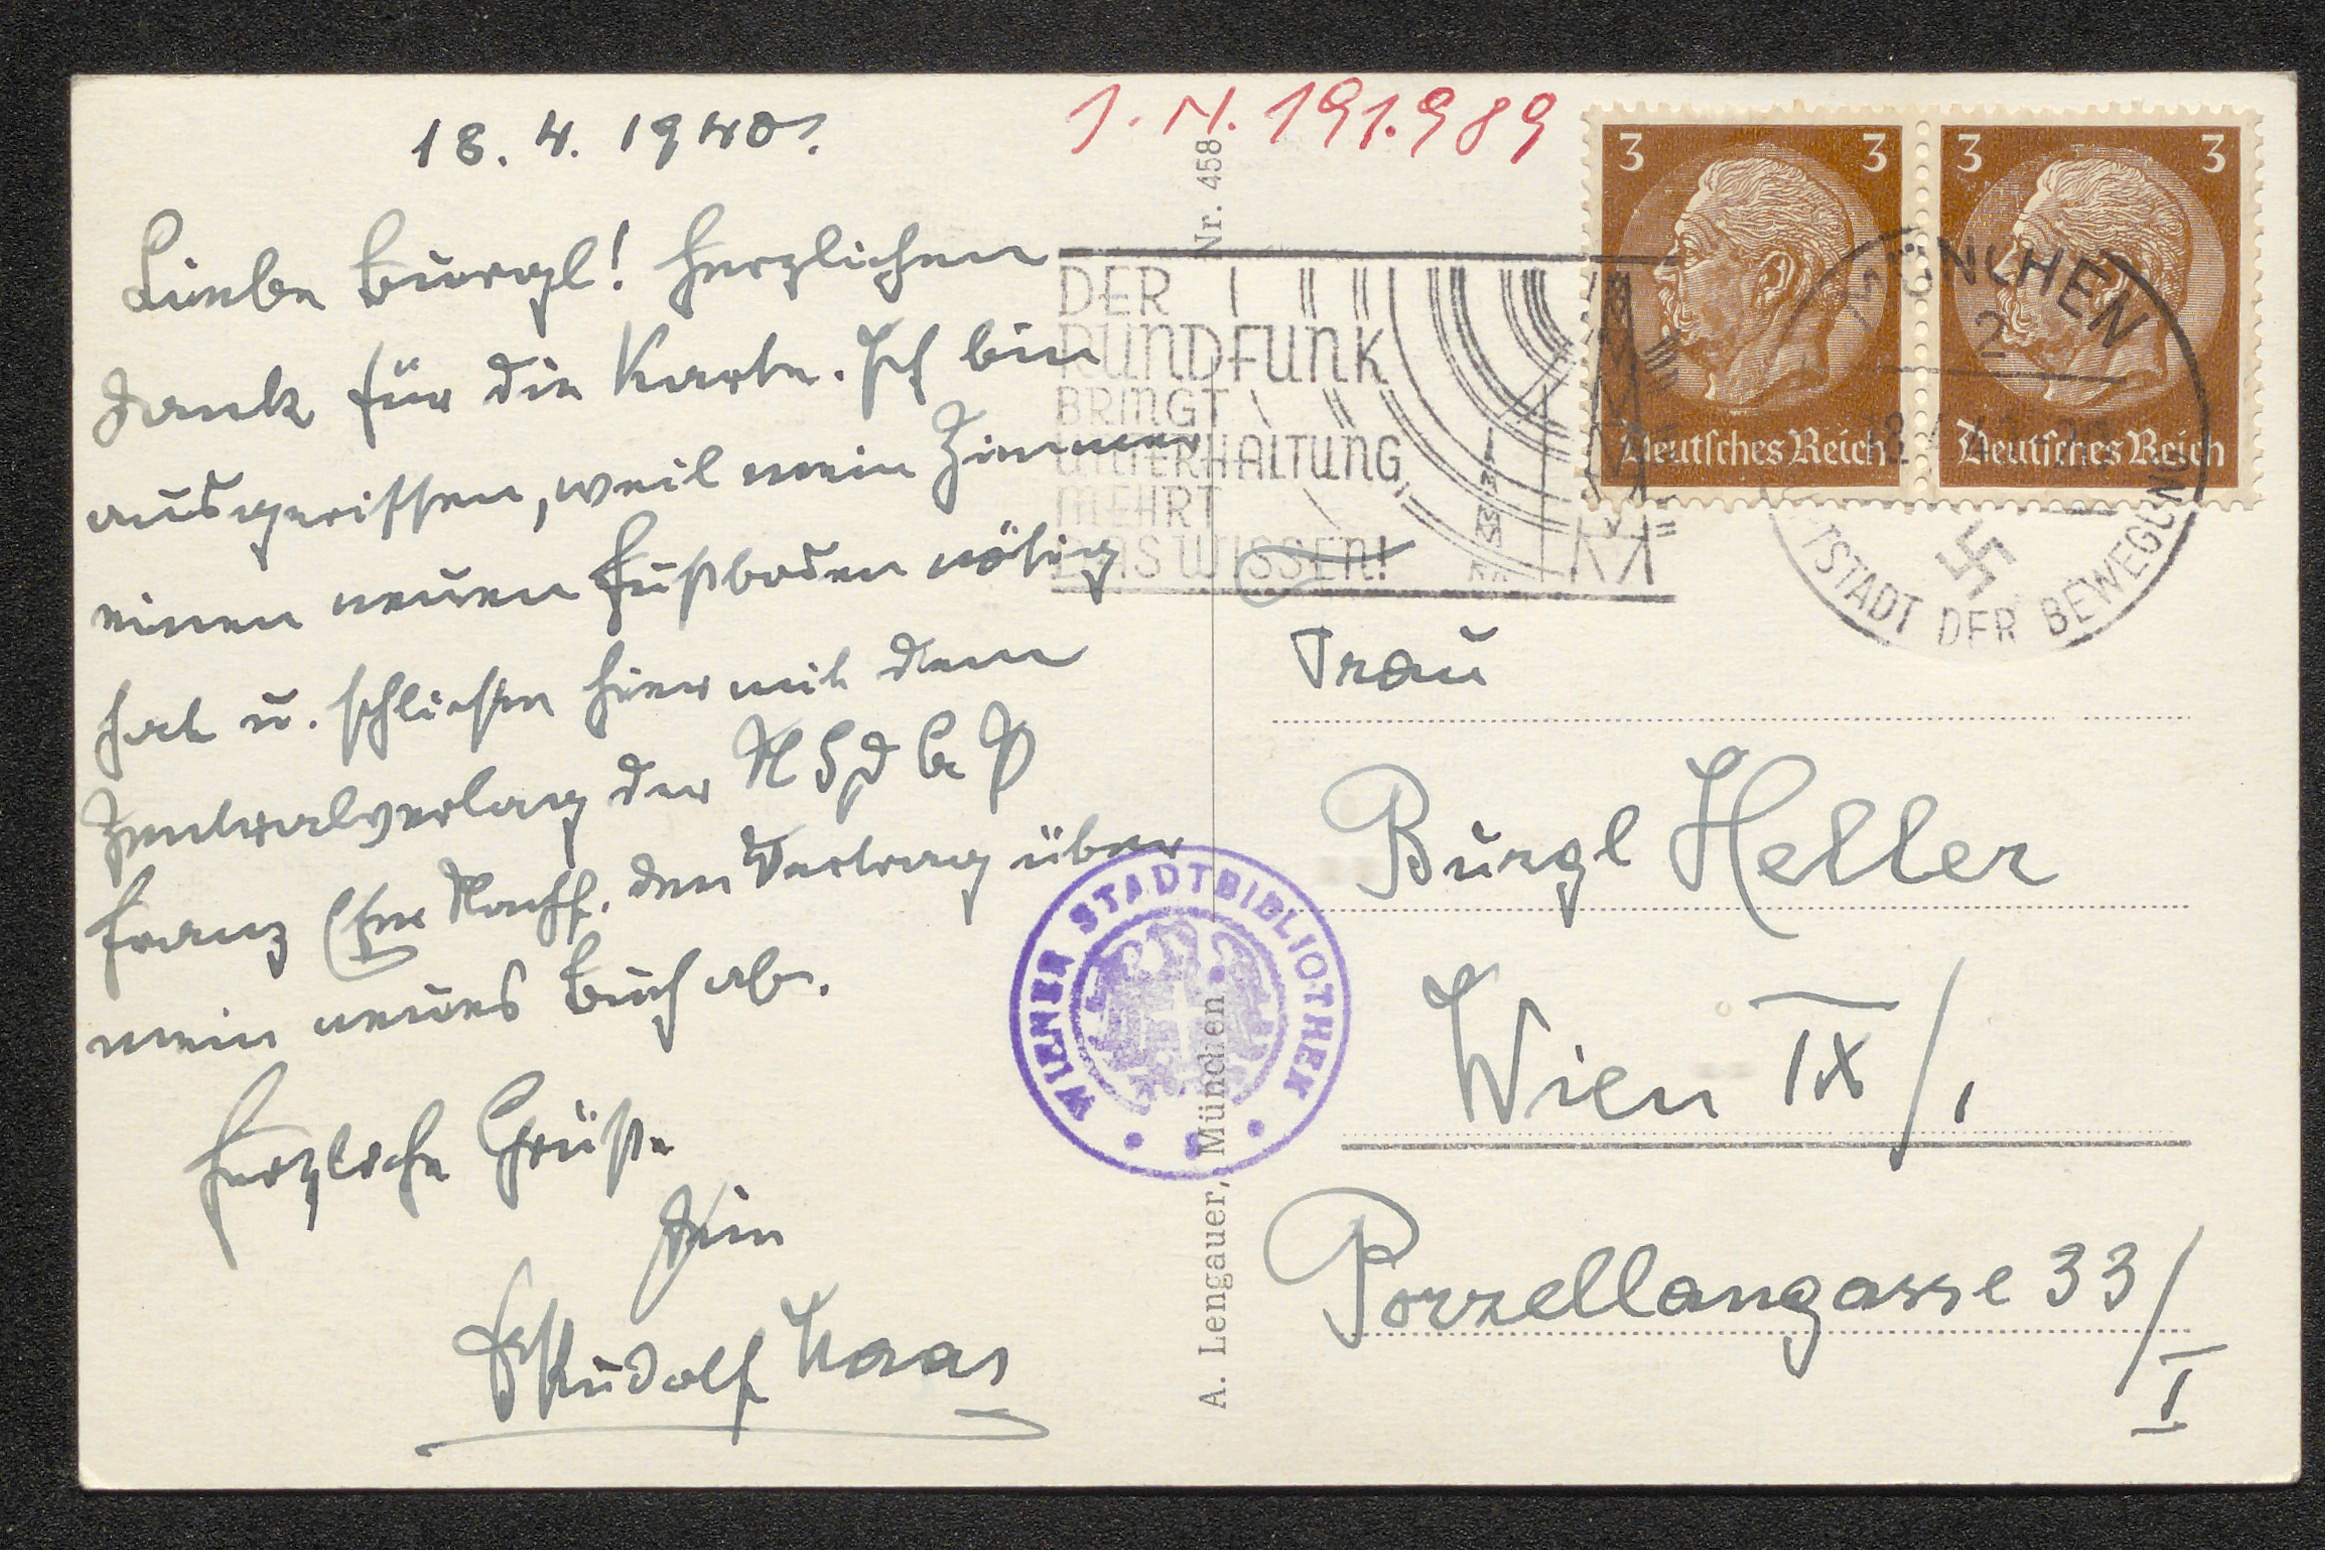 18. 4. 1940.
Liebe Burgl! Herzlichen
Dank für die Karte. Ich bin
ausgerissen, weil mein Zimmer
einen neuen Fußboden nötig
hat u. schließe hier mit dem
Zentralverlag der NSDAP
Franz Eher Nachf. den Vertrag über
mein neues Buch ab.
Herzliche Grüße
Dein
Rudolf Haas
J. N. 191.989
Nr. 458
A. Lengauer, München
DER
RUNDFUNK
BRINGT
UNTERHALTUNG
MEHRT
DAS WISSEN!
3 3
Deutsches Reich
3 3
Deutsches Reich
MÜNCHEN
2
HAUPTSTADT DER BEWEGUNG
WIENER STADTBIBLIOTHEK
Frau
Burgl Heller
Wien IX/1
Porzellangasse 33/
I